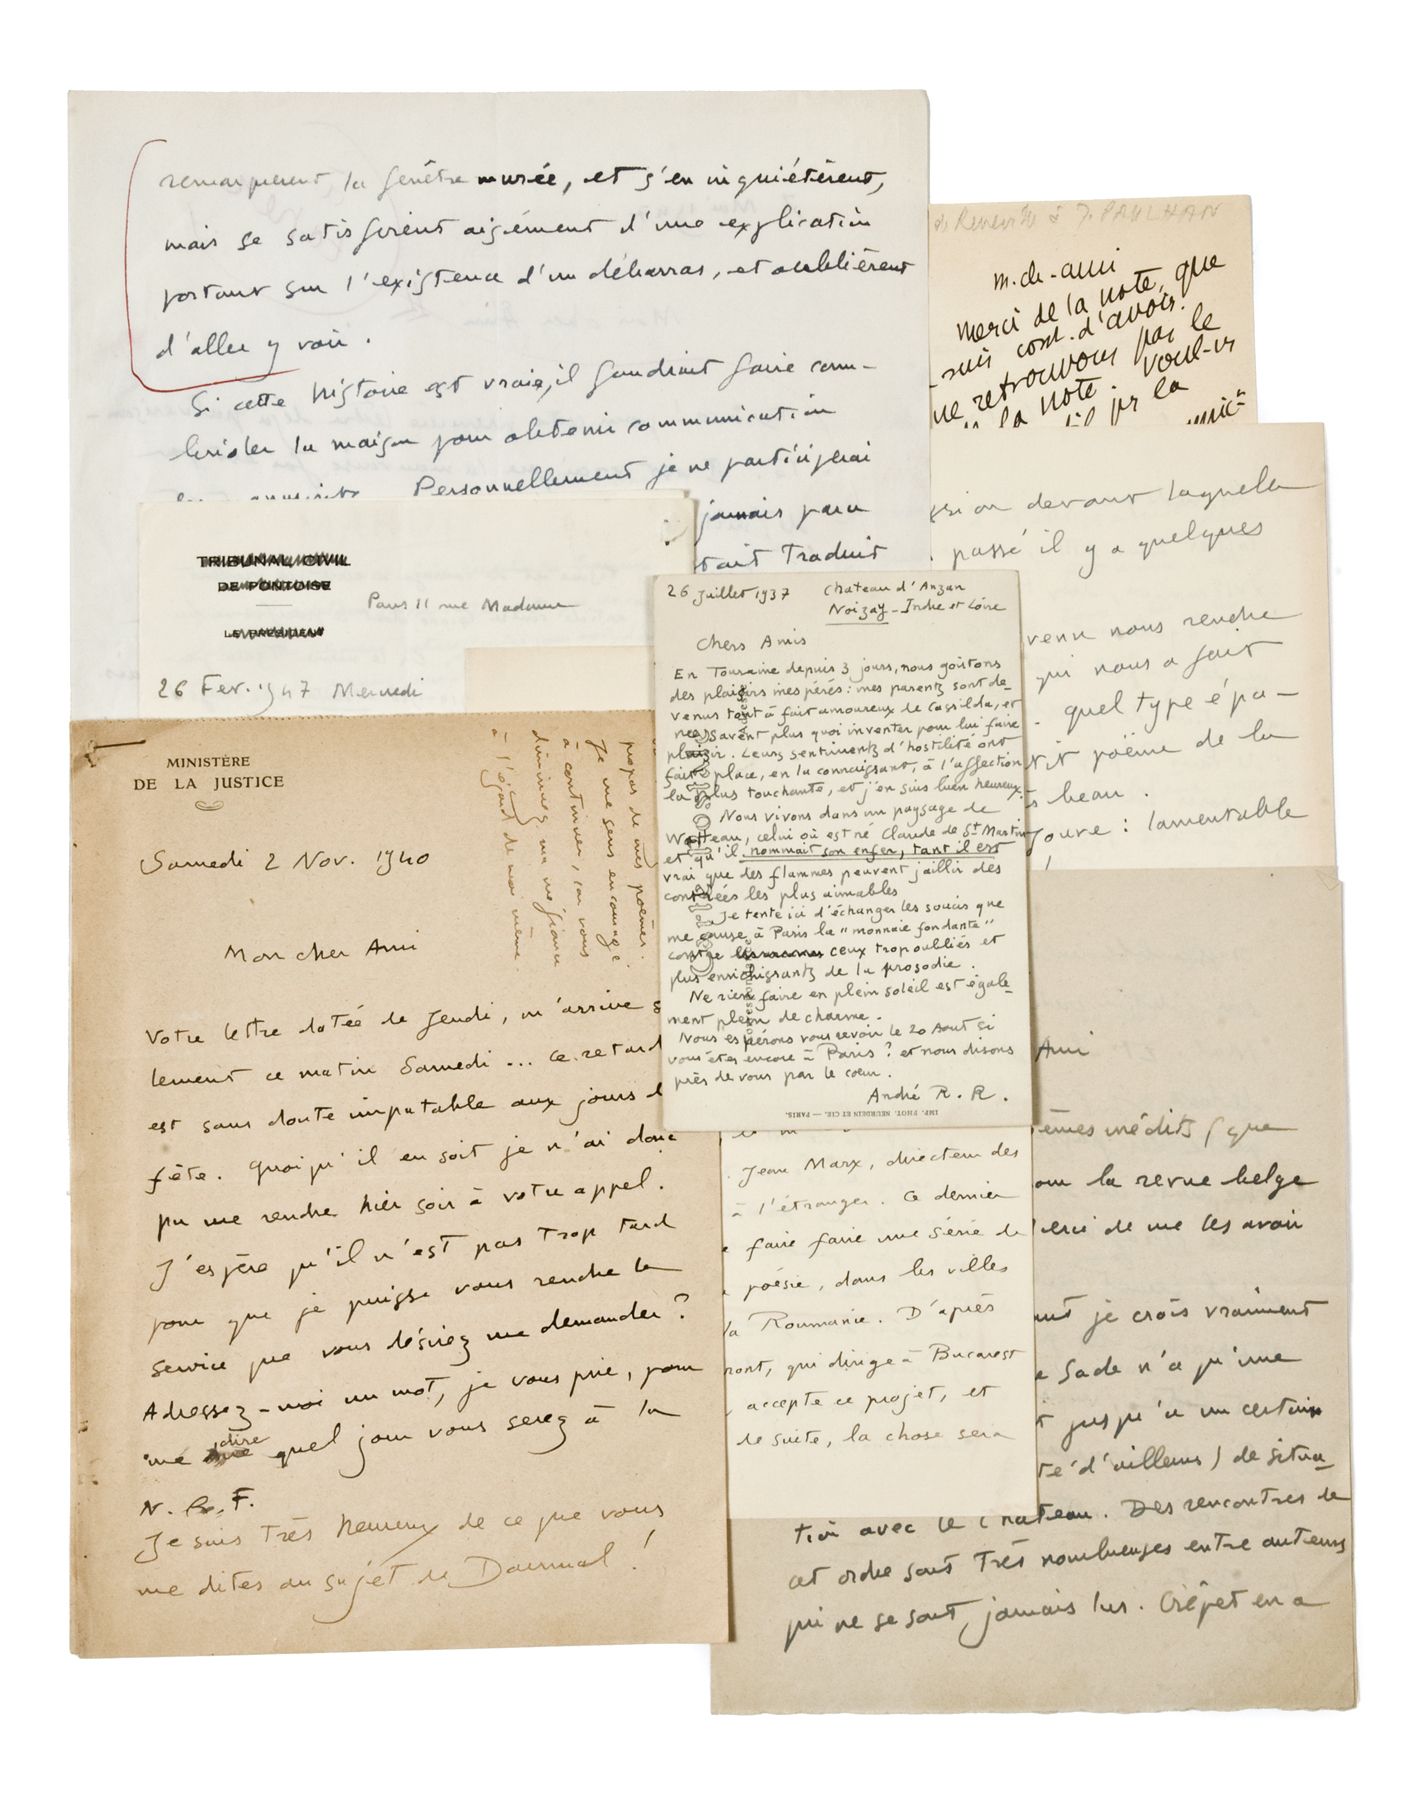 remarquèrent, la fenêtre murée, et s'en inquiétèrent,
mais se satisfirent aisément d'une explication
portant sur l'existence d'un débarras, et oublièrent
d'aller y voir.
Si cette histoire est vraie, il faudrait faire cam-
brioler la maison pour obtenir communication
Personnellement je ne participerai
jamais pour
tait traduit
de Renéville à J. PAULHAN
m. ch. ami
merci de la note, que
suis cont. d'avoir.
ne retrouvons pas le
la note voul-vs
la
ssion devant laquelle
passé il y a quelques
venu nous rendre
qui nous a fait
quel type épa-
tit poème de la
beau.
Jouve : lamentable
TRIBUNAL CIVIL
DE PONTOISE
LE PRÉSIDENT
Paris 11 rue Madame
26 Fev. 1947 Mercredi
26 Juillet 1937 Chateau d'Anzan
Noizay - Indre et Loire
Chers Amis
En Touraine depuis 3 jours, nous goûtons
des plaisirs inespérés : mes parents sont de-
venus tout à fait amoureux de Cassilda, et
ne savent plus quoi inventer pour lui faire
plaisir. Leurs sentiments d'hostilité ont
fait place, en la connaissant, à l'affection
la plus touchante, et j'en suis bien heureux.
Nous vivons dans un paysage de
Watteau, celui où est né Claude de St Martin
et qu'il nommait son enfer, tant il est
vrai que des flammes peuvent jaillir des
contrées les plus aimables
Je tente ici d'échanger les soucis que
me cause à Paris la "monnaie fondante"
contre ceux trop oubliés et
plus enrichissants de la prosodie.
Ne rien faire en plein soleil est égale-
ment plein de charme.
Nous espérons vous revoir le 20 Aout si
vous êtes encore à Paris ? et nous disons
près de vous par le cœur.
André R. R.
IMP. PHOT. NEURDEIN ET CIE. — PARIS.
MINISTÈRE
DE LA JUSTICE
propos de mes poèmes.
Je me sens encouragé
à continuer, car vous
diminuez ma méfiance
à l'égard de moi même.
Samedi 2 Nov. 1940
Mon cher Ami
Votre lettre datée de Jeudi, m'arrive s
lement ce matin Samedi ... ce retard
est sans doute imputable aux jours d
fête. Quoiqu'il en soit je n'ai donc
pu me rendre hier soir à votre appel.
J'espère qu'il n'est pas trop tard
pour que je puisse vous rendre le
service que vous désiriez me demander ?
Adressez-moi un mot, je vous prie, pour
me dire quel jour vous serez à la
N. R. F.
Je suis très heureux de ce que vous
me dites au sujet de Daumal !
Jean Marx, directeur des
à l'étranger. Ce dernier
faire faire une série de
poésie, dans les villes
la Roumanie. D'après
mont, qui dirige à Bucarest
accepte ce projet, et
de suite, la chose sera
Ami
èmes inédits (que
our la revue belge
Merci de me les avoir
ant je crois vraiment
e Sade n'a qu'une
t jusqu'à un certain
té d'ailleurs) de situa-
tion avec le Chateau. Des rencontres de
cet ordre sont très nombreuses entre auteurs
qui ne se sont jamais lus. Crépet en a